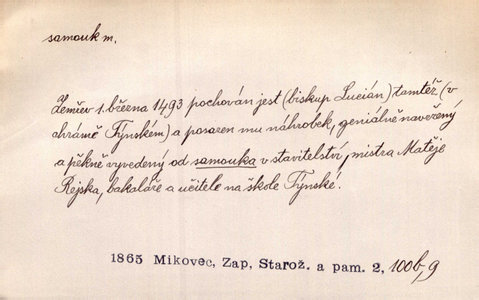 samouk m.
Zemřev 1. března 1493 pochován jest (biskup Lucián) tamtéž (v
chrámě Týnském) a posazen mu náhrobek, geniálně navržený
a pěkně vyvedený od samouka v stavitelství, mistra Matěje
Rejska, bakaláře a učitele na škole Týnské.
1865 Mikovec, Zap, Starož. a pam. 2, 100b,9